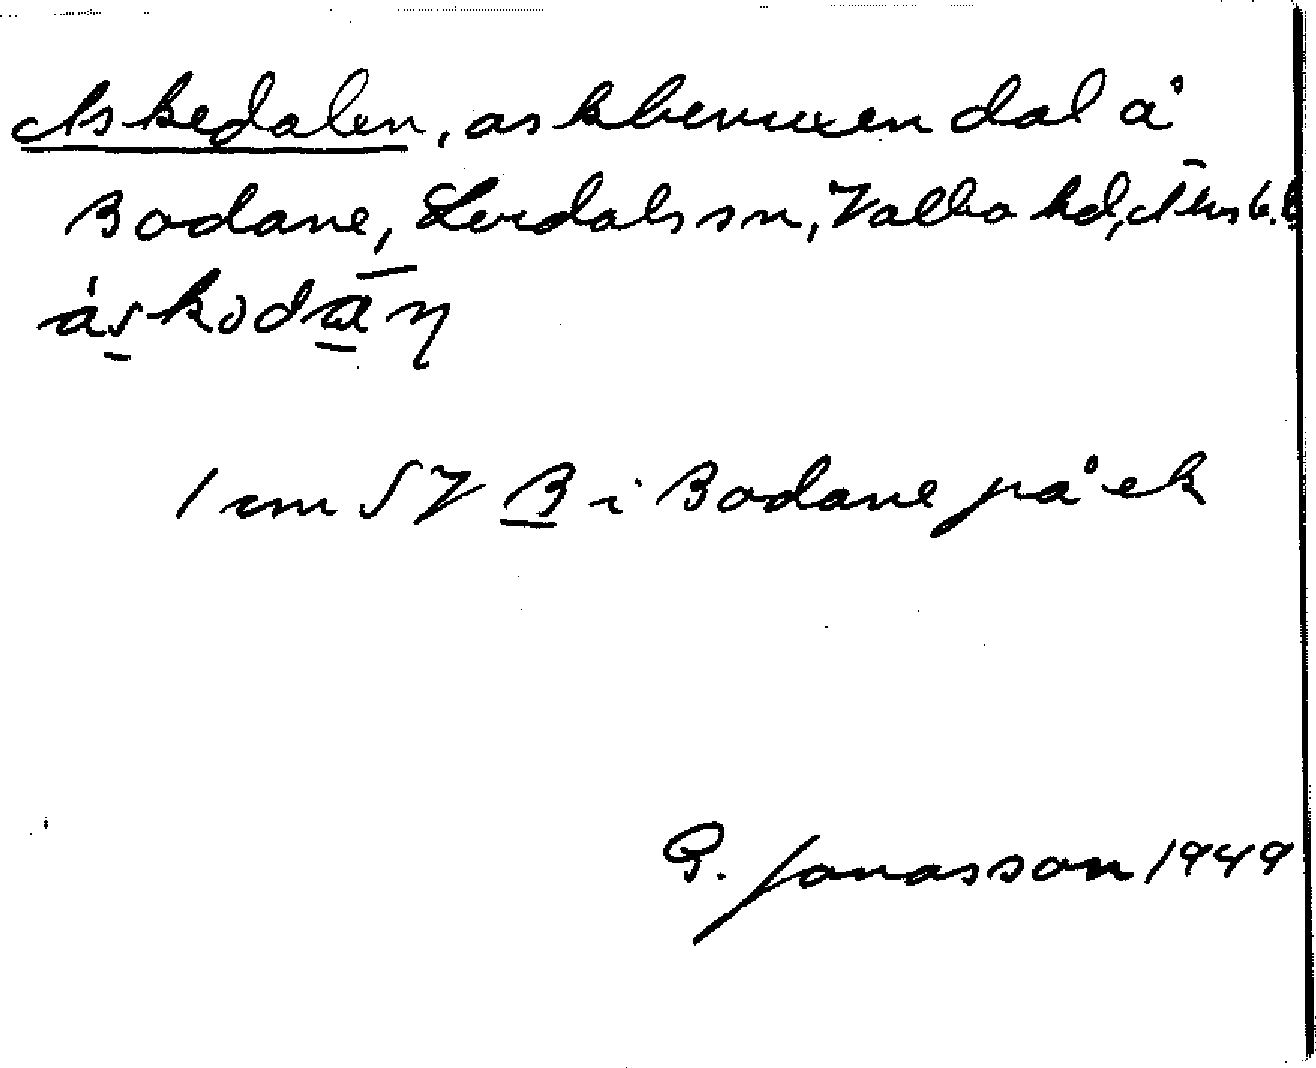 Askedalen, askbevuxen dal å
Bodane, Lerdals sn, Valbo hd, Älvs
1 cm SV B i Bodane på ek
G. Jonasson 1949